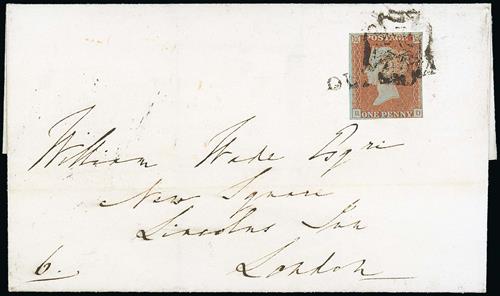 POSTAGE
ONE PENNY
William Wade Esqre
New Square
Lincolns Inn
London
6.